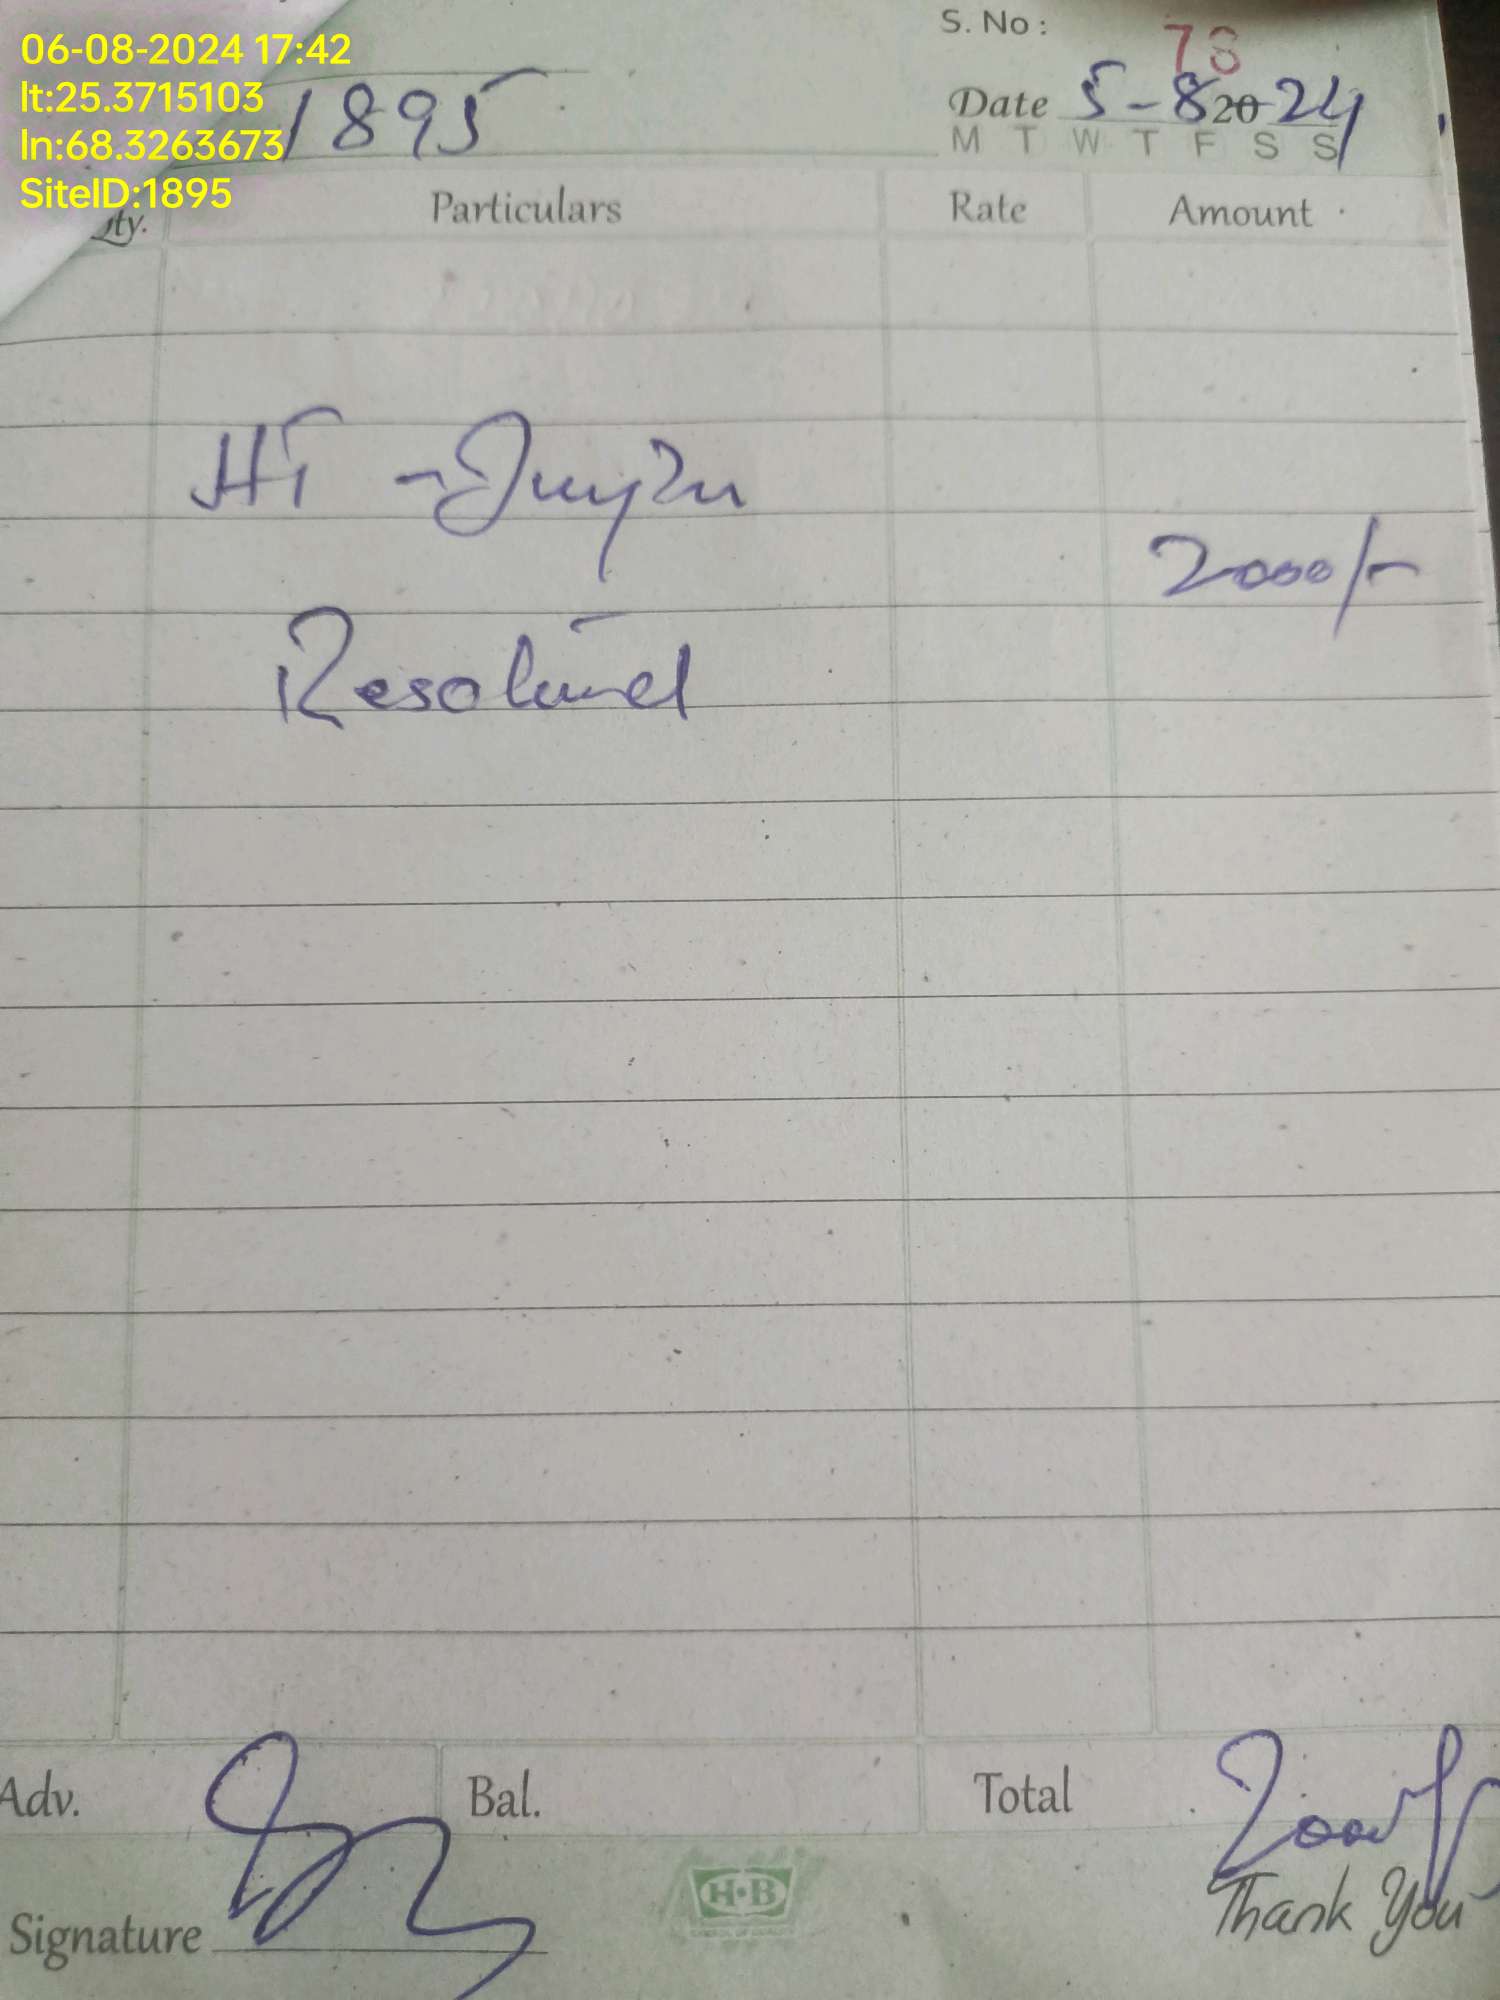 06-08-2024 17:42
lt:25.3715103
ln:68.3263673
SiteID:1895
S. No : 78
1895
Date 5-8 2024
M T W T F S S
Qty. Particulars Rate Amount
HT -
2000/-
Resolved
Adv. Bal. Total 2000/-
H·B
Signature
Thank You